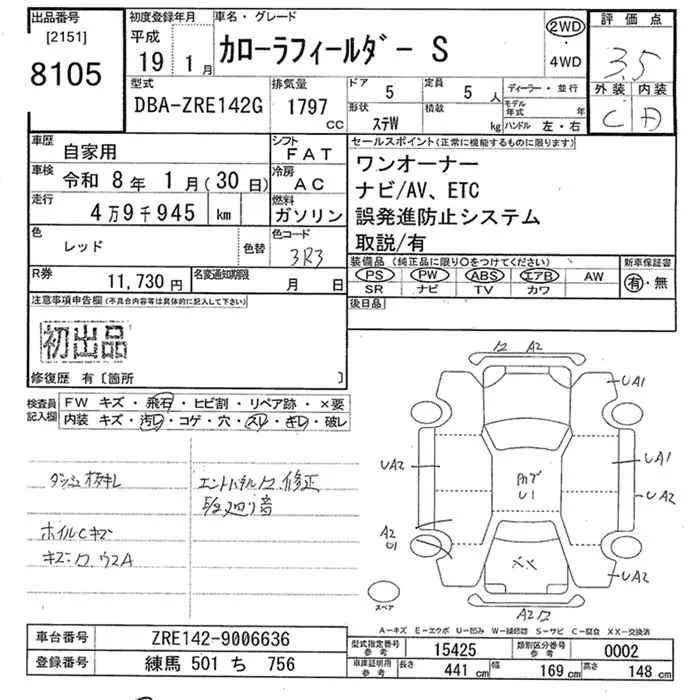 出品番号
[2151]
8105
初度登録年月
平成
19 1月
車名・グレード
カローラフィールダー S
2WD
・
4WD
評価点
3.5
外装 内装
C A
型式
DBA-ZRE142G
排気量
1797
CC
ドア 5
定員 5 人
形状 ステW
積載 kg
ディーラー・並行
モデル年式 年
ハンドル 左・右
車歴 自家用
シフト FAT
車検 令和 8年 1月(30日)
冷房 AC
走行 4万9千945 km
燃料 ガソリン
色 レッド
色替
色コード 3R3
R券 11,730円
名変通知期限 月 日
セールスポイント(正常に機能するものに限ります)
ワンオーナー
ナビ/AV、ETC
誤発進防止システム
取説/有
装備品 (純正品に限り○をつけてください)
新車保証書
PS PW ABS エアB AW
SR ナビ TV カワ
有・無
後日品
注意事項申告欄(不具合内容等は具体的に記入して下さい)
初出品
修復歴 有〔箇所 〕
検査員記入欄
FW キズ・飛石・ヒビ割・リペア跡・×要
内装 キズ・汚レ・コゲ・穴・スレ・ギレ・破レ
ホイルCキズ
修正
A2
UA1
UA2
UA1
UA2
A2
U1
U1
UA2
XX
A2
スペア
A-キズ E-エクボ U-凹み W-補修跡 S-サビ C-腐食 XX-交換済
車台番号 ZRE142-9006636
登録番号 練馬 501 ち 756
型式指定番号 参考 15425
類別区分番号 参考 0002
車庫証明用 参考 長さ 441 cm 幅 169 cm 高さ 148 cm